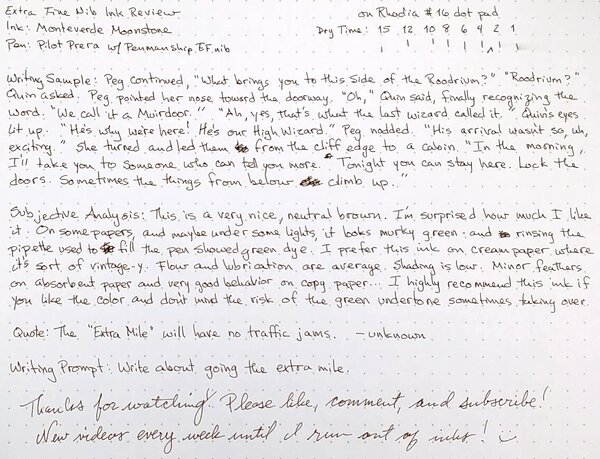 Extra Fine Nib Ink Review on Rhodia #16 dot pad
Ink: Monteverde Moonstone Dry Time: 15 12 10 8 6 4 2 1
Pen: Pilot Prera w/ Penmanship EF nib
Writing Sample: Peg continued, "What brings you to this side of the Roodrium?" "Roodrium?"
Quin asked. Peg pointed her nose toward the doorway. "Oh," Quin said, finally recognizing the
word. "We call it a Muirdoor." "Ah, yes, that's what the last wizard called it." Quin's eyes
lit up. "He's why we're here! He's our High Wizard." Peg nodded. "His arrival wasn't so, uh,
exciting." She turned and led them from the cliff edge to a cabin. "In the morning,
I'll take you to someone who can tell you more. Tonight you can stay here. Lock the
doors. Sometimes the things from below climb up."
Subjective Analysis: This is a very nice, neutral brown. I'm surprised how much I like
it. On some papers, and maybe under some lights, it looks murky green - and rinsing the
pipette used to fill the pen showed green dye. I prefer this ink on cream paper where
it's sort of vintage-y. Flow and lubrication are average. Shading is low. Minor feathers
on absorbent paper and very good behavior on copy paper... I highly recommend this ink if
you like the color and don't mind the risk of the green undertone sometimes taking over.
Quote: The "Extra Mile" will have no traffic jams. -unknown
Writing Prompt: Write about going the extra mile.
Thanks for watching! Please like, comment, and subscribe!
New videos every week until I run out of inks!